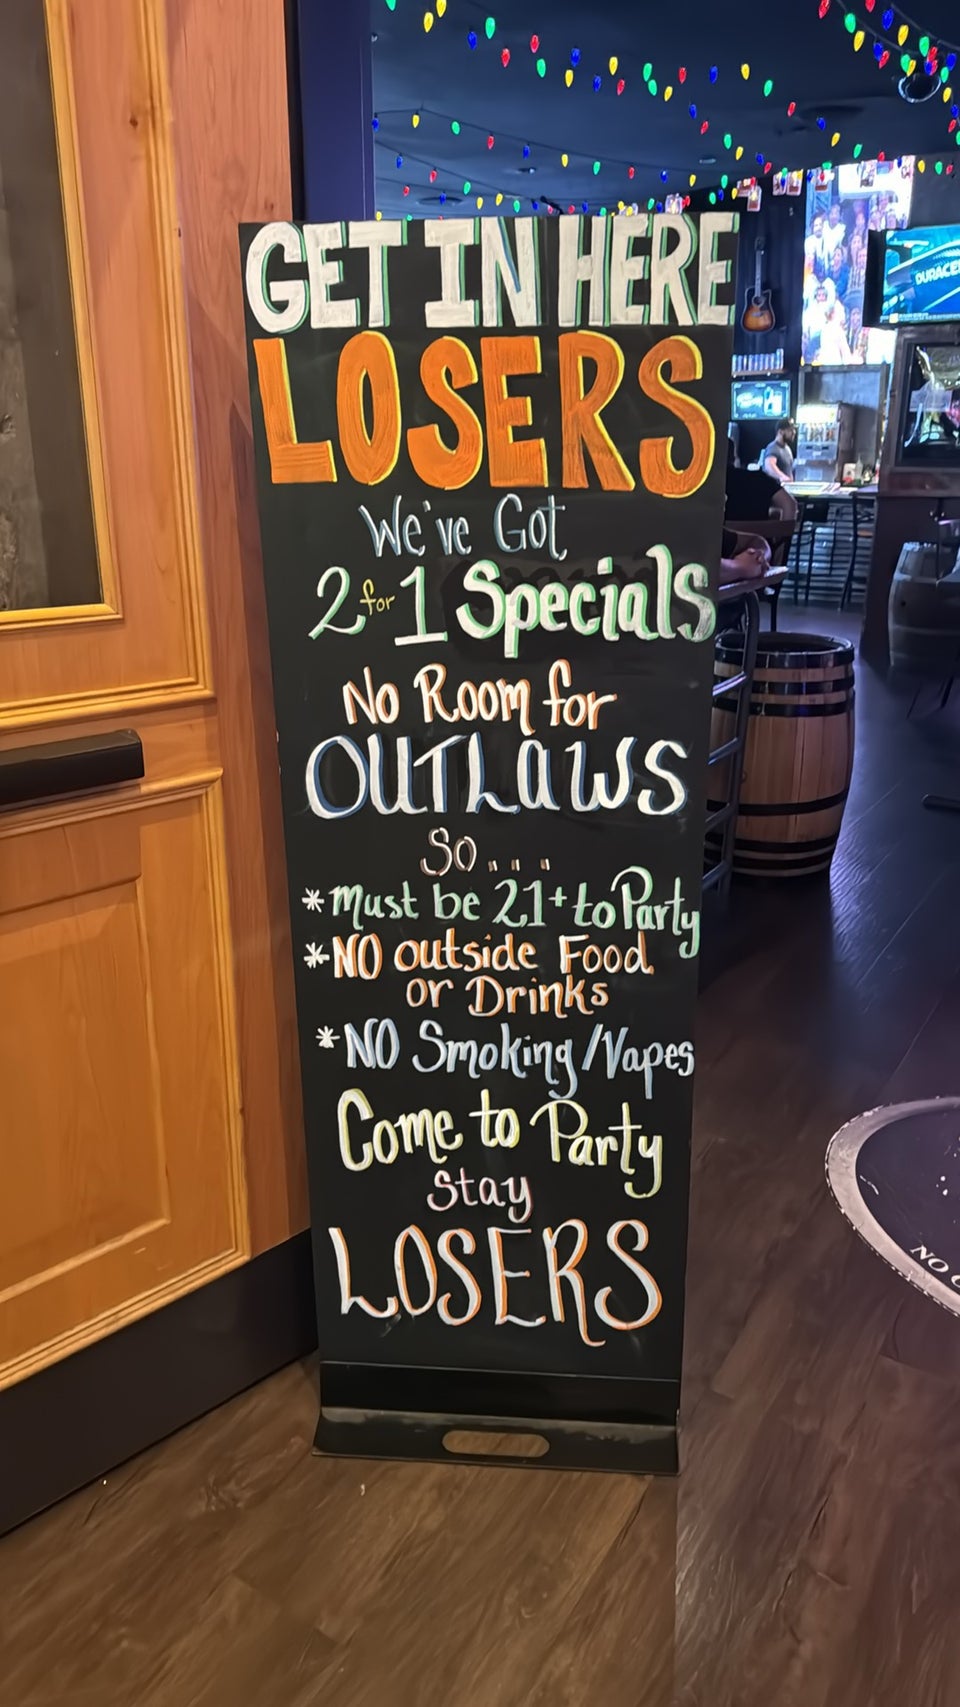 GET IN HERE
LOSERS
We've Got
2 for 1 Specials
No Room for
OUTLAWS
So...
*Must be 21+ to Party
*NO outside Food
or Drinks
*NO Smoking/Vapes
Come to Party
Stay
LOSERS
DURACE
NO